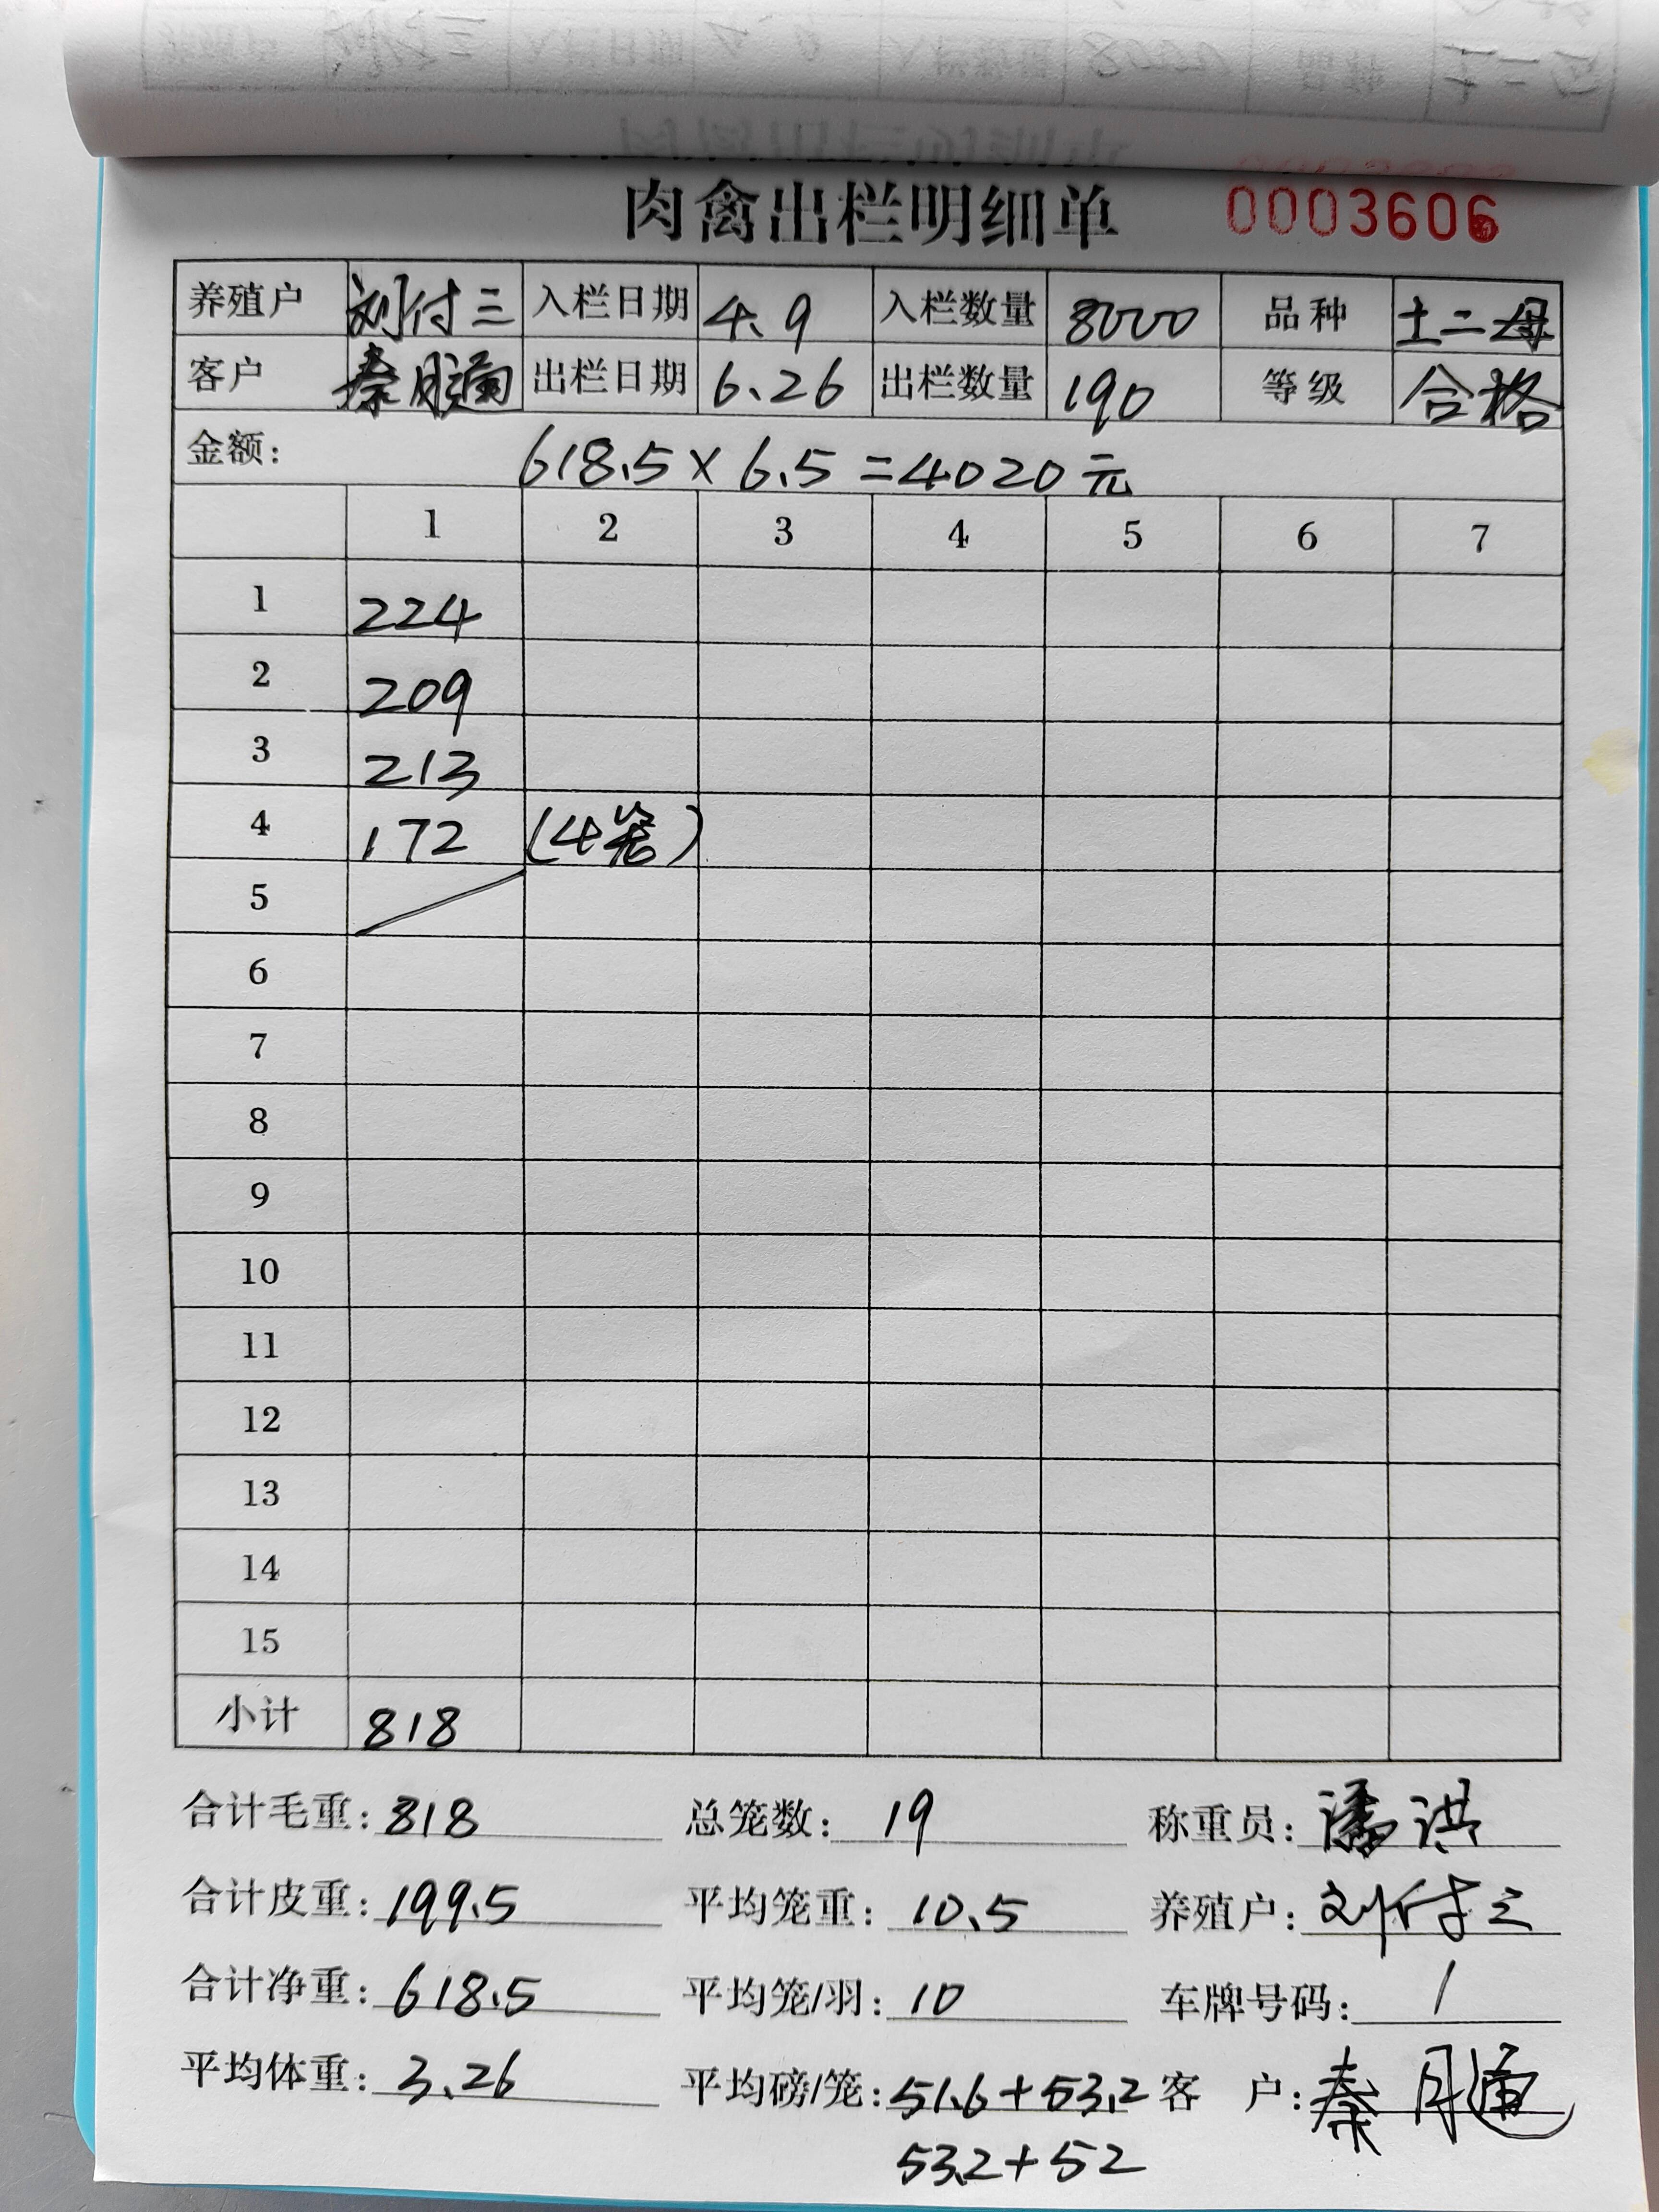 肉禽出栏明细单 0003606
养殖户 刘付三 入栏日期 4.9 入栏数量 8000 品种 土二母
客户 秦月通 出栏日期 6.26 出栏数量 190 等级 合格
金额: 618.5×6.5=4020元
1 2 3 4 5 6 7
1 224
2 209
3 213
4 172 (4笼)
5
6
7
8
9
10
11
12
13
14
15
小计 818
合计毛重: 818 总笼数: 19 称重员: 潘洪
合计皮重: 199.5 平均笼重: 10.5 养殖户: 刘付三
合计净重: 618.5 平均笼/羽: 10 车牌号码: /
平均体重: 3.26 平均磅/笼: 51.6+53.2 客 户: 秦月通
53.2+52